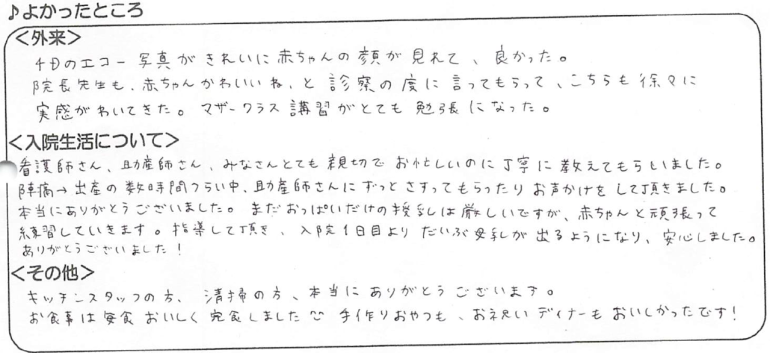 ♪よかったところ
<外来>
4Dのエコー写真がきれいに赤ちゃんの顔が見れて、良かった。
院長先生も、赤ちゃんかわいいね、と診察の度に言ってもらって、こちらも徐々に
実感がわいてきた。マザークラス講習がとても勉強になった。
<入院生活について>
看護師さん、助産師さん、みなさんとても親切でお忙しいのに丁寧に教えてもらいました。
陣痛→出産の数時間つらい中、助産師さんにずっとさすってもらったりお声かけをして頂きました。
本当にありがとうございました。まだおっぱいだけの授乳は厳しいですが、赤ちゃんと頑張って
練習していきます。指導して頂き、入院1日目よりだいぶ母乳が出るようになり、安心しました。
ありがとうございました!
<その他>
キッチンスタッフの方、清掃の方、本当にありがとうございます。
お食事は毎食おいしく完食しました 手作りおやつも、お祝いディナーもおいしかったです!